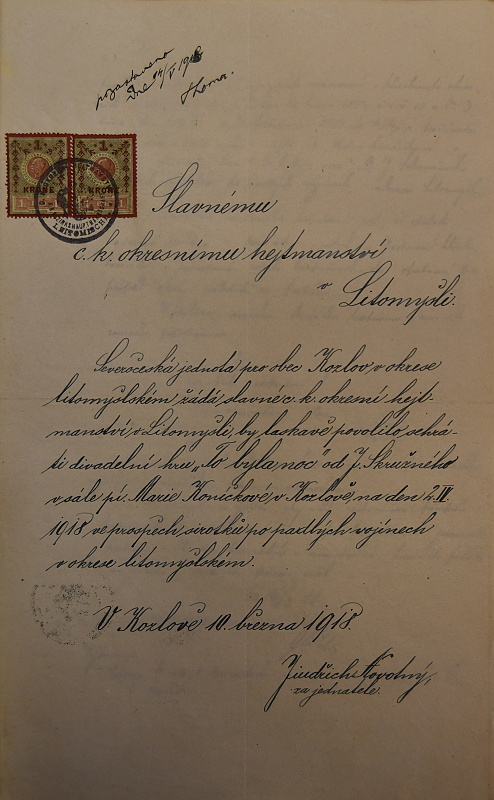 pozastaveno
Dne 14/V 1918
1 1
KRONE KRONE
LEITOMISCHL
Slavnému
c. k. okresnímu hejtmanství
v
Litomyšli.
Severočeská jednota pro obec Kozlov, v okrese
litomyšlském žádá slavné c. k. okresní hejt-
manství v Litomyšli, by laskavě povolilo, sehrá-
ti divadelní hru „To byla noc“ od J. Skružného
v sále pí. Marie Koníčkové v Kozlově, na den 2. IV.
1918, ve prospěch sirotků po padlých vojínech
v okrese litomyšlském.
V Kozlově 10. března 1918.
Jindřich Novotný,
za jednatele.